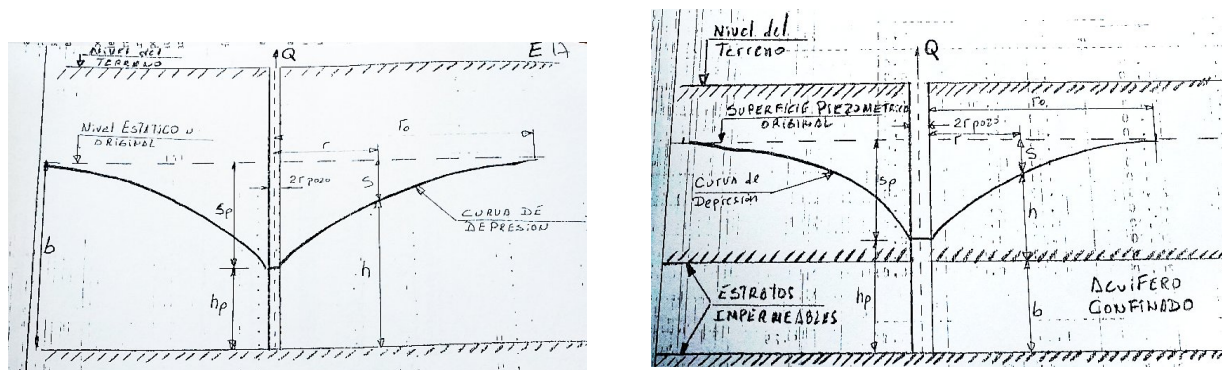 E 17
Q
Nivel del
TERRENO
Nivel ESTATICO u
ORIGINAL
ro
r
2r pozo
S
sp
CURVA DE
DEPRESION
b
h
hp
Nivel del
Terreno
Q
SUPERFICIE PIEZOMETRICA
ORIGINAL
ro
2r pozo
r
S
sp
Curva de
Depresión
h
hp
ESTRATOS
IMPERMEABLES
b
ACUIFERO
CONFINADO